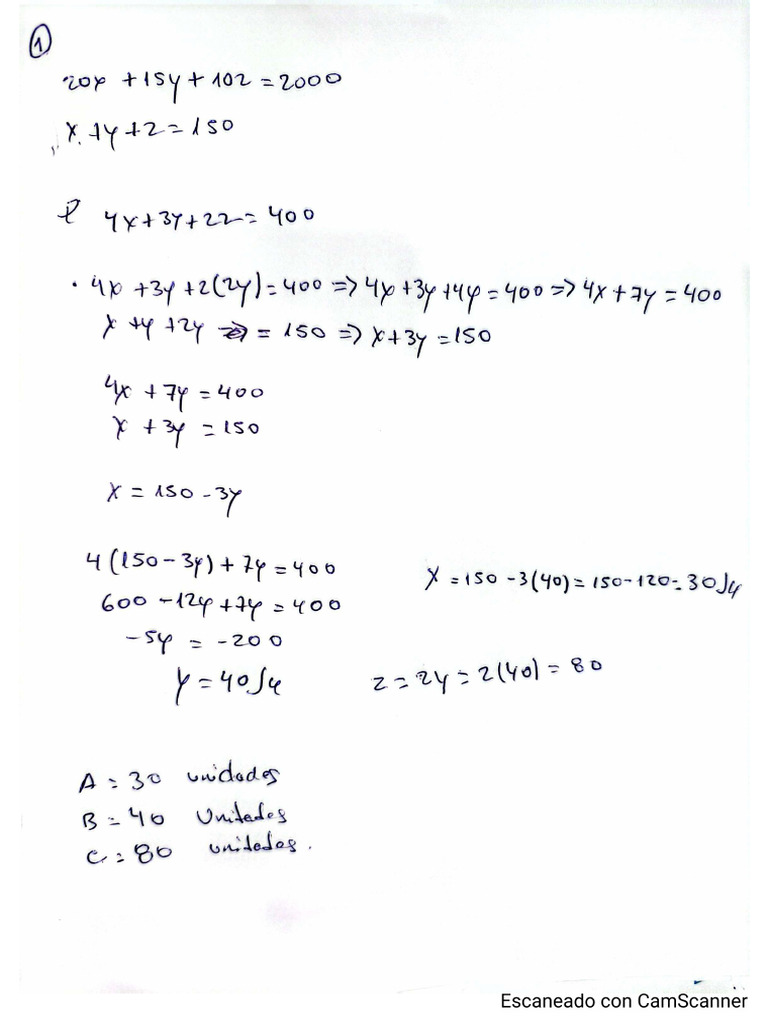 1
20x + 15y + 10z = 2000
x + y + z = 150
4x + 3y + 2z = 400
• 4x + 3y + 2(2y) = 400 => 4x + 3y + 4y = 400 => 4x + 7y = 400
x + y + 2y = 150 => x + 3y = 150
4x + 7y = 400
x + 3y = 150
x = 150 - 3y
4(150 - 3y) + 7y = 400
600 - 12y + 7y = 400
-5y = -200
y = 40
x = 150 - 3(40) = 150 - 120 = 30
z = 2y = 2(40) = 80
A = 30 unidades
B = 40 Unidades
C = 80 unidades.
Escaneado con CamScanner